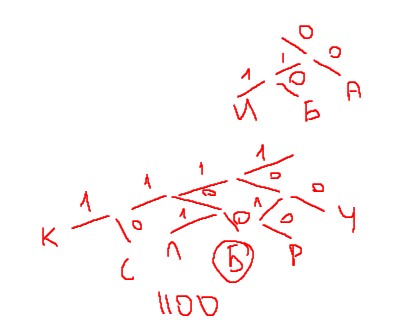 0
1 0
1 0
И Б А
1
1 0
1 0 0
1 0 1 0 1 0
К С Л Б Р Ч
1100